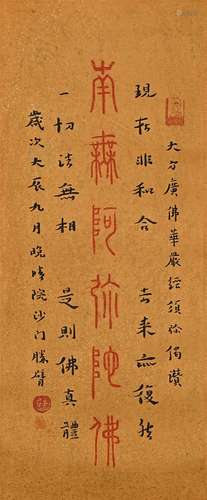 大方廣佛華嚴經須弥偈讚
現在非和合 去來亦復然
南無阿弥陀佛
一切法無相 是則佛真體
歲次大辰九月晚晴院沙門勝臂